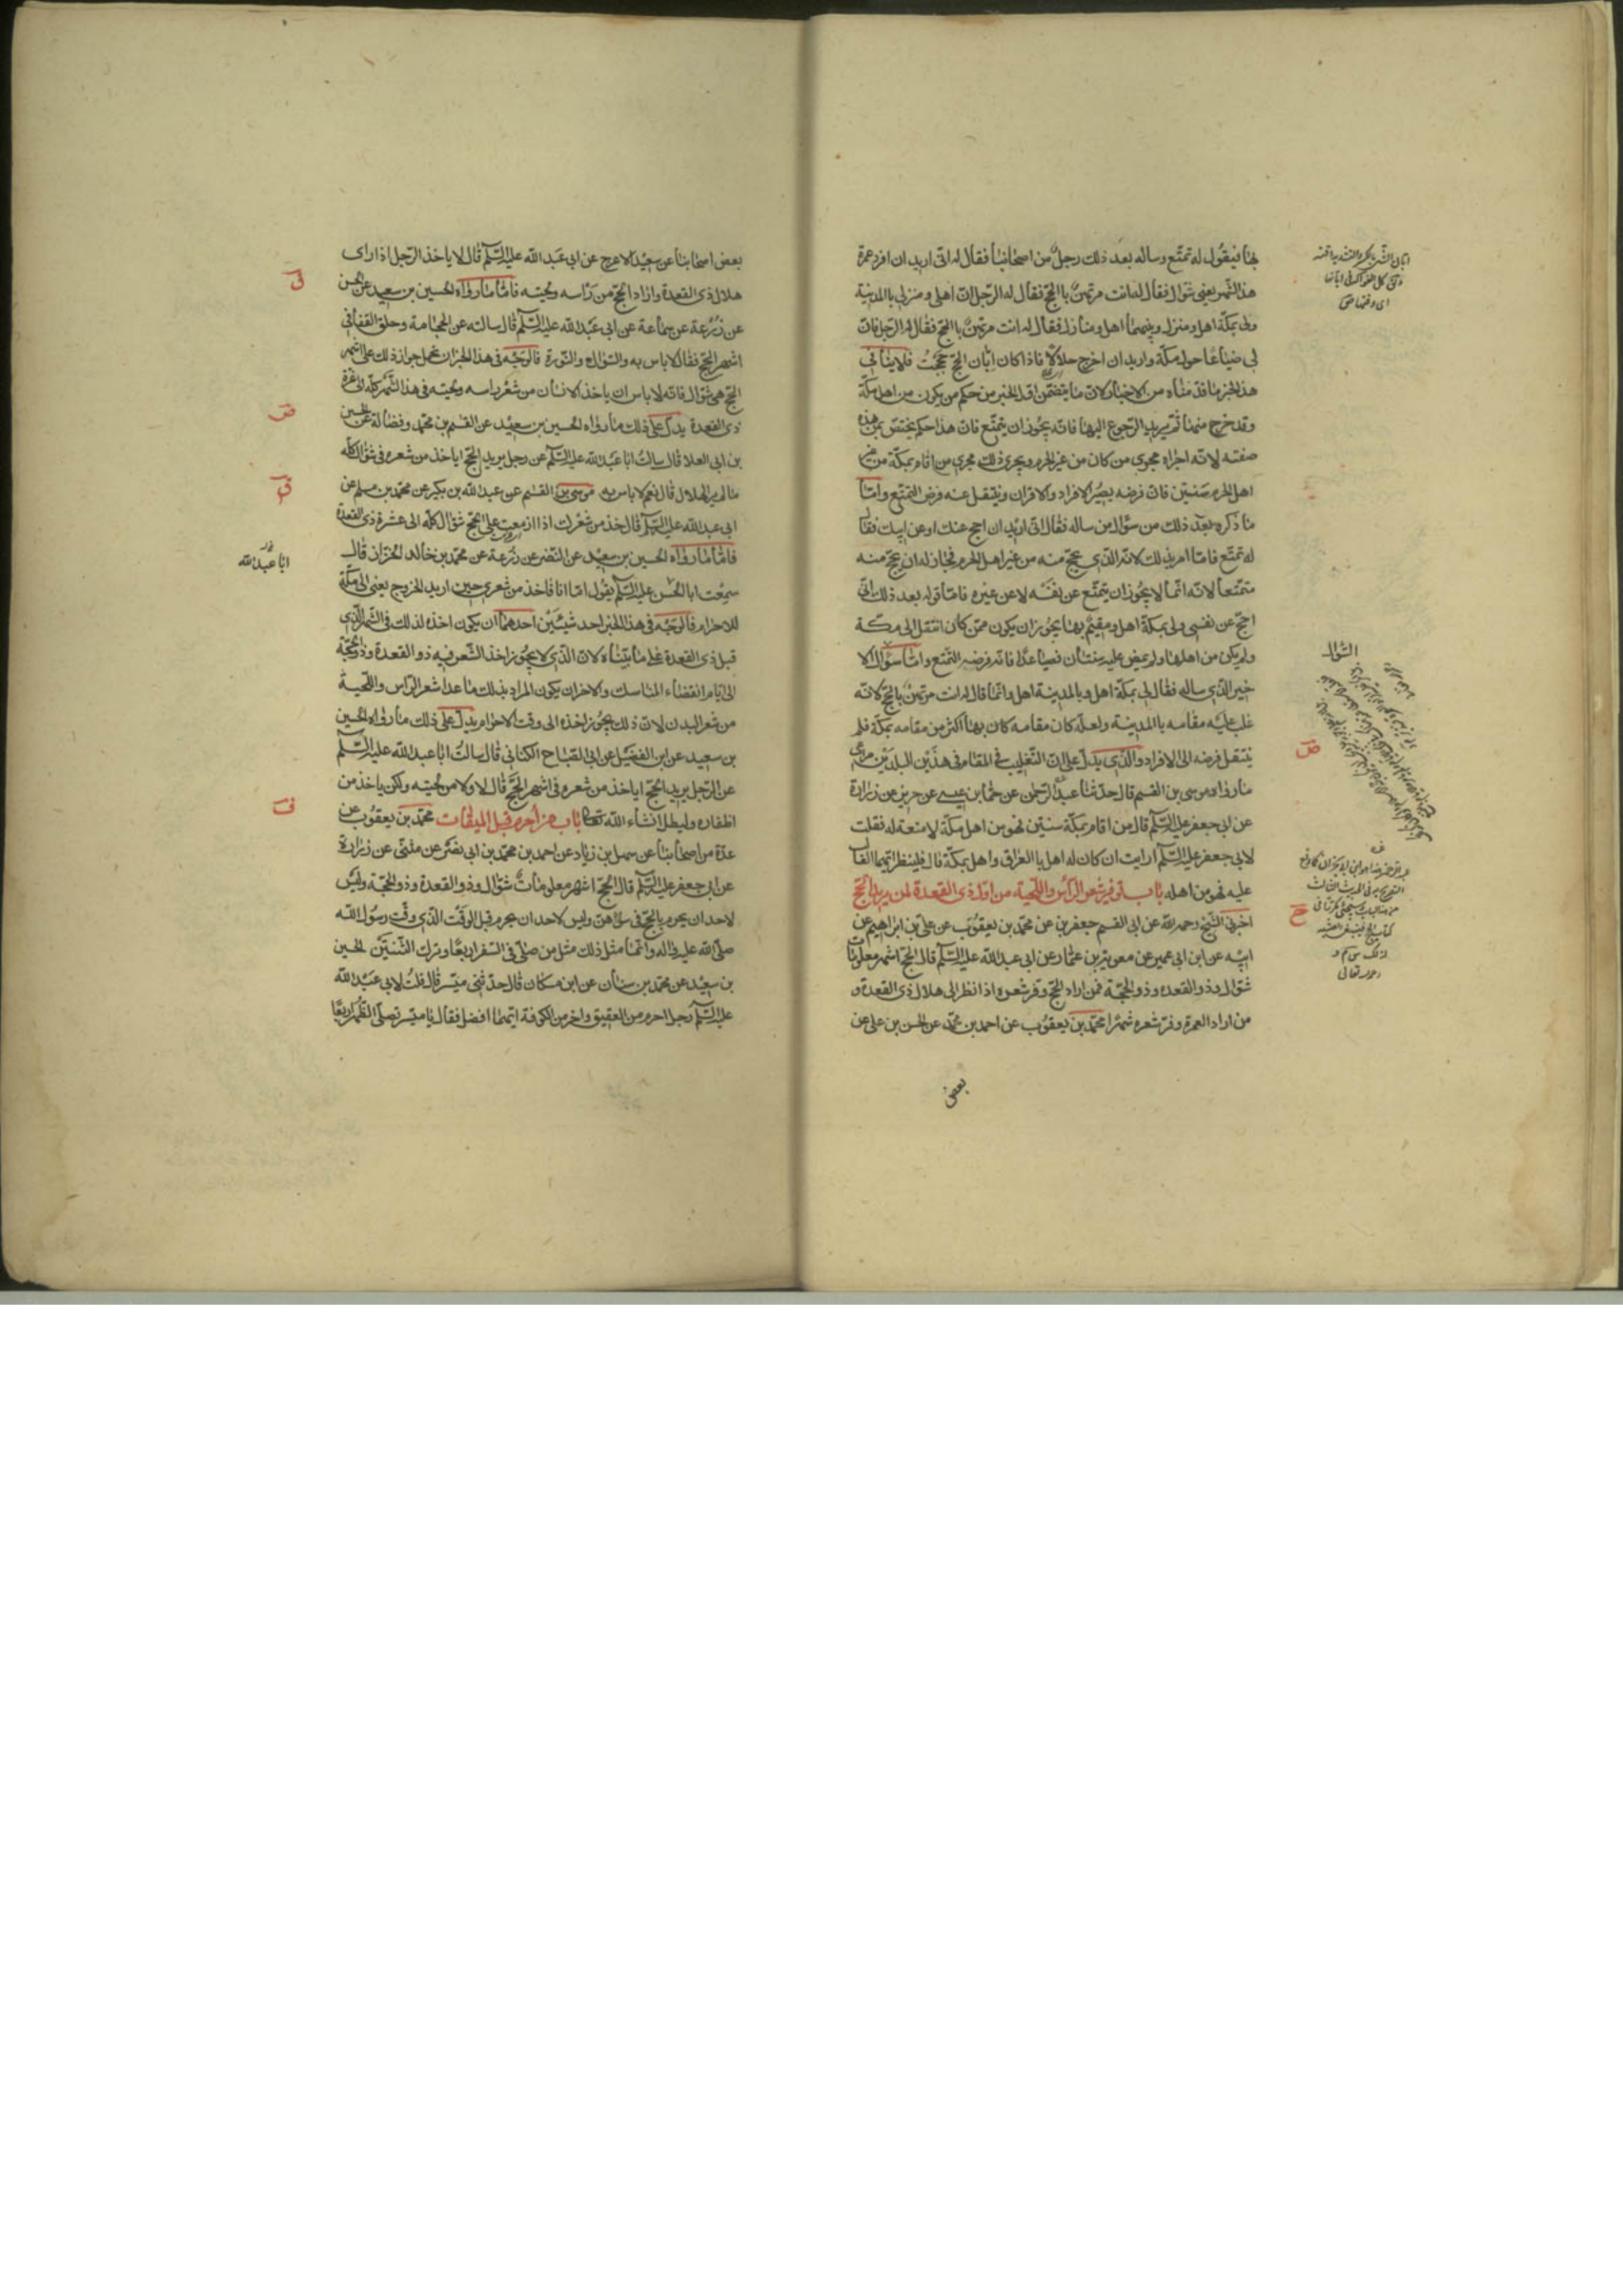 بها فيقول له تمتع وساله بعد ذلك رجل من اصحابنا فقال له انى اريد ان افرد عمرة
هذا الشهر يعنى شوال فقال له انت مرتهن بالحج فقال له الرجل ان اهلى و منزلى بالمدينة
ولى بمكة اهل و منزل و بينهما اهل و منازل فقال له انت مرتهن بالحج فقال له الرجل فان
لى ضياعا حول مكة و اريد ان اخرج حلالا فاذا كان ابان الحج حججت فلا ينافى
هذا الخبر ما قدمناه من الاخبار لان ما يتضمن اول الخبر من حكم من يكون من اهل مكة
وقد خرج منها ثم يريد الرجوع اليها فانه يجوز ان يتمتع فان هذا حكم يختص بمن هذه
صفته لانه اجراه مجرى من كان من غير الحرم ويجرى ذلك مجرى من اقام بمكة من غير
اهل الحرم سنتين فان فرضه يصير الافراد والاقران وينتقل عنه فرض التمتع واما
ما ذكره بعد ذلك من سؤال من ساله فقال انى اريد ان احج عنك او عن ابيك فقال
له تمتع فاما امر بذلك لانه الذى يحج منه من غير اهل الحرم فجاز له ان يحج منه
متمتعا لانه انما لا يجوز ان يتمتع عن نفسه لا عن غيره فاما قوله بعد ذلك انى
احج عن نفسى ولى بمكة اهل و مقيم بها يجوز ان يكون ممن كان انتقل الى مكة
ولم يكن من اهلها ولم يمض عليه سنتان فصاعدا فانه فرضه التمتع واما سؤال الا
خير الذى ساله فقال لى بمكة اهل و بالمدينة اهل وانما قال له انت مرتهن بالحج لانه
غلب عليه مقامه بالمدينة ولعله كان مقامه كان بها اكثر من مقامه بمكة فلم
ينتقل فرضه الى الافراد والذى يدل على ان التغليب فى المقام فى هذين البلدين مراعى
ما رواه موسى بن القسم قال حدثنا عبد الرحمن عن حماد بن عيسى عن حريز عن زرارة
عن ابى جعفر عليه السلم قال من اقام بمكة سنتين فهو من اهل مكة لا متعة له فقلت
لابى جعفر عليه السلم ارايت ان كان له اهل بالعراق و اهل بمكة قال فلينظر ايهما الغالب
عليه فهو من اهله باب توفير شعر الراس واللحية من اول ذى القعدة لمن يريد الحج
اخبرنى الشيخ رحمه الله عن ابى القسم جعفر بن عن محمد بن يعقوب عن على بن ابراهيم عن
ابيه عن ابن ابى عمير عن معوية بن عمار عن ابى عبد الله عليه السلم قال الحج اشهر معلومات
شوال وذو القعدة وذو الحجة فمن اراد الحج وفر شعره اذا نظر الى هلال ذى القعدة و
من اراد العمرة وفر شعره شهرا محمد بن يعقوب عن احمد بن محمد عن الحسن بن على عن
بعض
السؤال
بعض اصحابنا عن سعيد الاعرج عن ابى عبد الله عليه السلم قال لا ياخذ الرجل اذا راى
هلال ذى القعدة واراد الحج من راسه ولحيته فاما ما رواه الحسين بن سعيد عن الحسن
عن زرعة عن سماعة عن ابى عبد الله عليه السلم قال سالته عن الحجامة وحلق القفا فى
اشهر الحج فقال لا باس به والسواك والنورة فالوجه فى هذا الخبر ان نحمل جواز ذلك على اشهر
الحج هى شوال فانه لا باس ان ياخذ الانسان من شعر راسه ولحيته فى هذا الشهر كله الى غرة
ذى القعدة يدل على ذلك ما رواه الحسين بن سعيد عن القسم بن محمد وفضالة عن الحسين
بن ابى العلا قال سالت ابا عبد الله عليه السلم عن رجل يريد الحج اياخذ من شعره فى شوال كله
ما لم ير الهلال قال نعم لا باس به موسى بن القسم عن عبد الله بن بكير عن محمد بن مسلم عن
ابى عبد الله عليه السلم قال خذ من شعرك اذا ازمعت على الحج شوال كله الى عشرة ذى القعدة
فاما ما رواه الحسين بن سعيد عن النضر عن زرعة عن محمد بن خالد الخزاز قال
سمعت ابا الحسن عليه السلم يقول اما انا فاخذ من شعرى حين اريد الخروج يعنى الى مكة
للاحرام فالوجه فى هذا الخبر احد شيئين احدهما ان يكون اخذه لذلك فى الشهر الذى
قبل ذى القعدة على ما بيناه لان الذى لا يجوز اخذ الشعر فيه ذو القعدة وذو الحجة
الى ايام انقضاء المناسك والاخر ان يكون المراد بذلك ما عدا شعر الراس واللحية
من شعر البدن لان ذلك يجوز اخذه الى وقت الاحرام يدل على ذلك ما رواه الحسين
بن سعيد عن ابن الفضيل عن ابى الصباح الكنانى قال سالت ابا عبد الله عليه السلم
عن الرجل يريد الحج اياخذ من شعره فى اشهر الحج قال لا ولا من لحيته ولكن ياخذ من
اظفاره وليطل انشاء الله تعالى باب من احرم قبل الميقات محمد بن يعقوب عن
عدة من اصحابنا عن سهل بن زياد عن احمد بن محمد بن ابى نصر عن مثنى عن زرارة
عن ابى جعفر عليه السلم قال الحج اشهر معلومات شوال وذو القعدة وذو الحجة وليس
لاحد ان يحرم بالحج فى سواهن وليس لاحد ان يحرم قبل الوقت الذى وقت رسول الله
صلى الله عليه واله وانما مثل ذلك مثل من صلى فى السفر اربعا وترك الثنتين الحسين
بن سعيد عن محمد بن سنان عن ابن مسكان قال حدثنى ميسر قال قلت لابى عبد الله
عليه السلم رجل احرم من العقيق واخر من الكوفة ايهما افضل فقال يا ميسر تصلى الظهر اربعا
ابا عبد الله